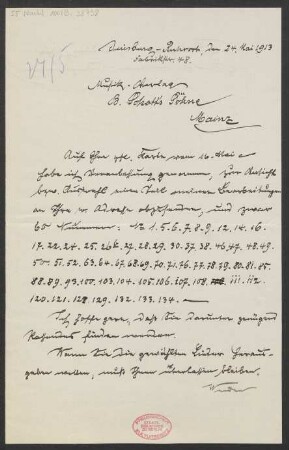 Duisburg-Ruhrort den 24. Mai 1913
Fabrikstr. 48.
Musik-Verlag
B. Schott's Söhne
Mainz
Auf Ihre gfl. Karte vom 16. Mai a
habe ich Veranlassung genommen, zur Ansicht
bzw. Auswahl einen Teil meiner Bearbeitungen
an Ihre w. Adresse abzusenden, und zwar
60 Nummern: № 1. 5. 6. 7. 8. 9. 12. 14. 16.
17. 22. 24. 25. 26. 27. 28. 29. 30. 37. 38. 46. 47. 48. 49.
50. 51. 52. 63. 64. 67. 68. 69. 70. 71. 76. 77. 78. 79. 80. 81. 85.
88. 89. 93. 100. 103. 104. 105. 106. 107. 108. 111. 112.
120. 121. 128. 129. 132. 133. 134. —
Ich hoffe gern, daß Sie darunter genügend
Passendes finden werden.
Wenn Sie die gewählten Lieder heraus-
geben wollen, muß Ihnen überlassen bleiben.